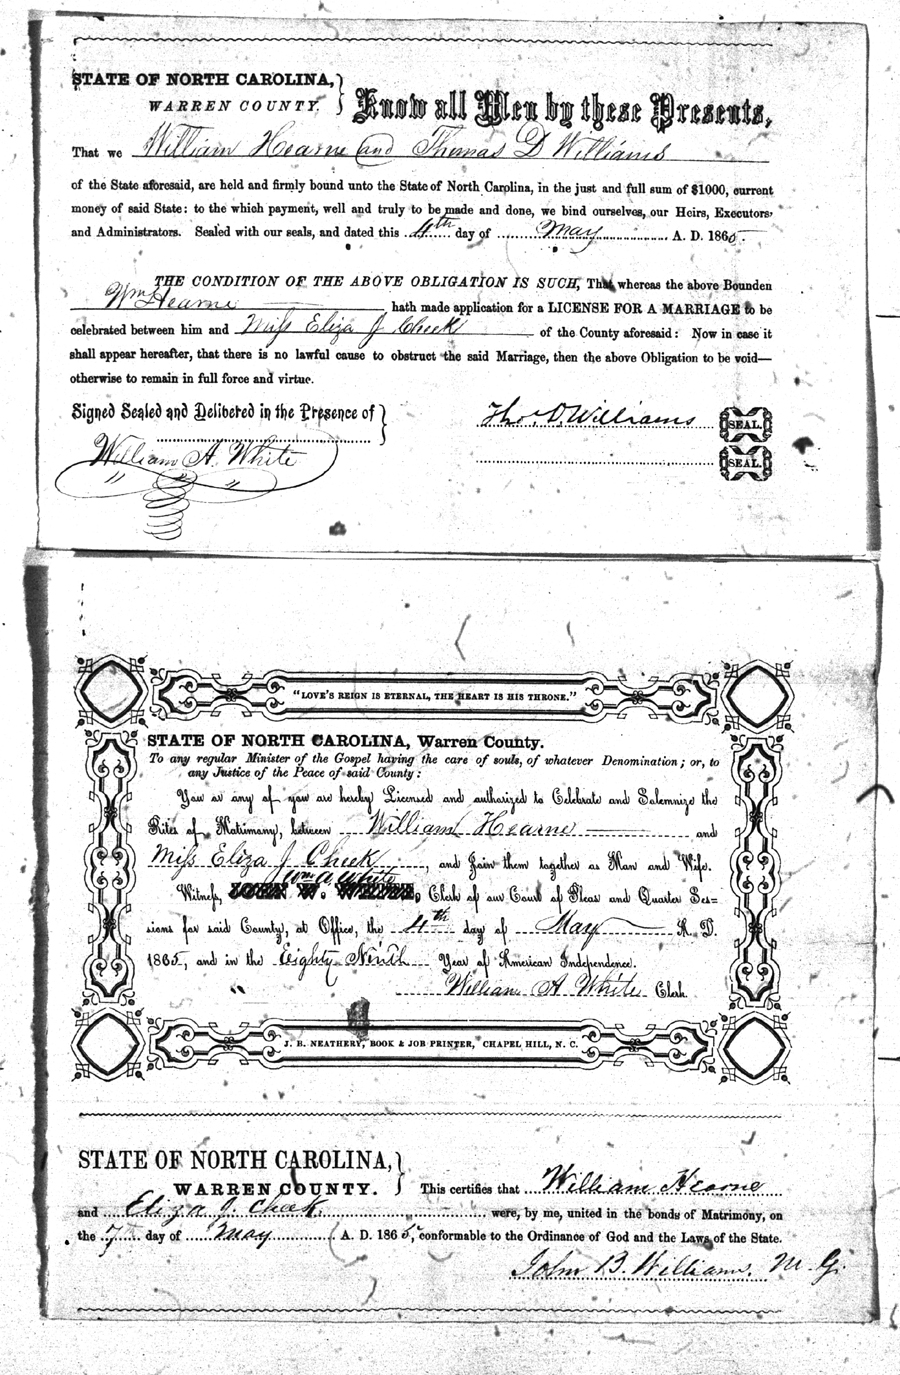 STATE OF NORTH CAROLINA,
WARREN COUNTY.
Know all Men by these Presents,
That we William Hearne and Thomas D Williams
of the State aforesaid, are held and firmly bound unto the State of North Carolina, in the just and full sum of $1000, current
money of said State: to the which payment, well and truly to be made and done, we bind ourselves, our Heirs, Executors
and Administrators. Sealed with our seals, and dated this 4th day of May A. D. 1865
THE CONDITION OF THE ABOVE OBLIGATION IS SUCH, That whereas the above Bounden
Wm Hearne hath made application for a LICENSE FOR A MARRIAGE to be
celebrated between him and Miss Eliza J Cheek of the County aforesaid: Now in case it
shall appear hereafter, that there is no lawful cause to obstruct the said Marriage, then the above Obligation to be void—
otherwise to remain in full force and virtue.
Signed Sealed and Delibered in the Presence of
Tho. D. Williams SEAL.
William A. White
SEAL.
"LOVE'S REIGN IS ETERNAL, THE HEART IS HIS THRONE."
STATE OF NORTH CAROLINA, Warren County.
To any regular Minister of the Gospel having the care of souls, of whatever Denomination; or, to
any Justice of the Peace of said County:
You or any of you are hereby Licensed and authorized to Celebrate and Solemnize the
Rites of Matrimony, between William Hearne and
Miss Eliza J Cheek, and Join them together as Man and Wife.
Wm A. White
Witness, JOHN W. WHITE, Clerk of our Court of Pleas and Quarter Ses=
sions for said County, at Office, the 4th day of May A. D.
1865, and in the Eighty Ninth Year of American Independence.
William A White Clerk
J. B. NEATHERY, BOOK & JOB PRINTER, CHAPEL HILL, N. C.
STATE OF NORTH CAROLINA,
WARREN COUNTY.
This certifies that William Hearne
and Eliza J. Cheek were, by me, united in the bonds of Matrimony, on
the 7th day of May A. D. 1865, conformable to the Ordinance of God and the Laws of the State.
John B. Williams. M. G.